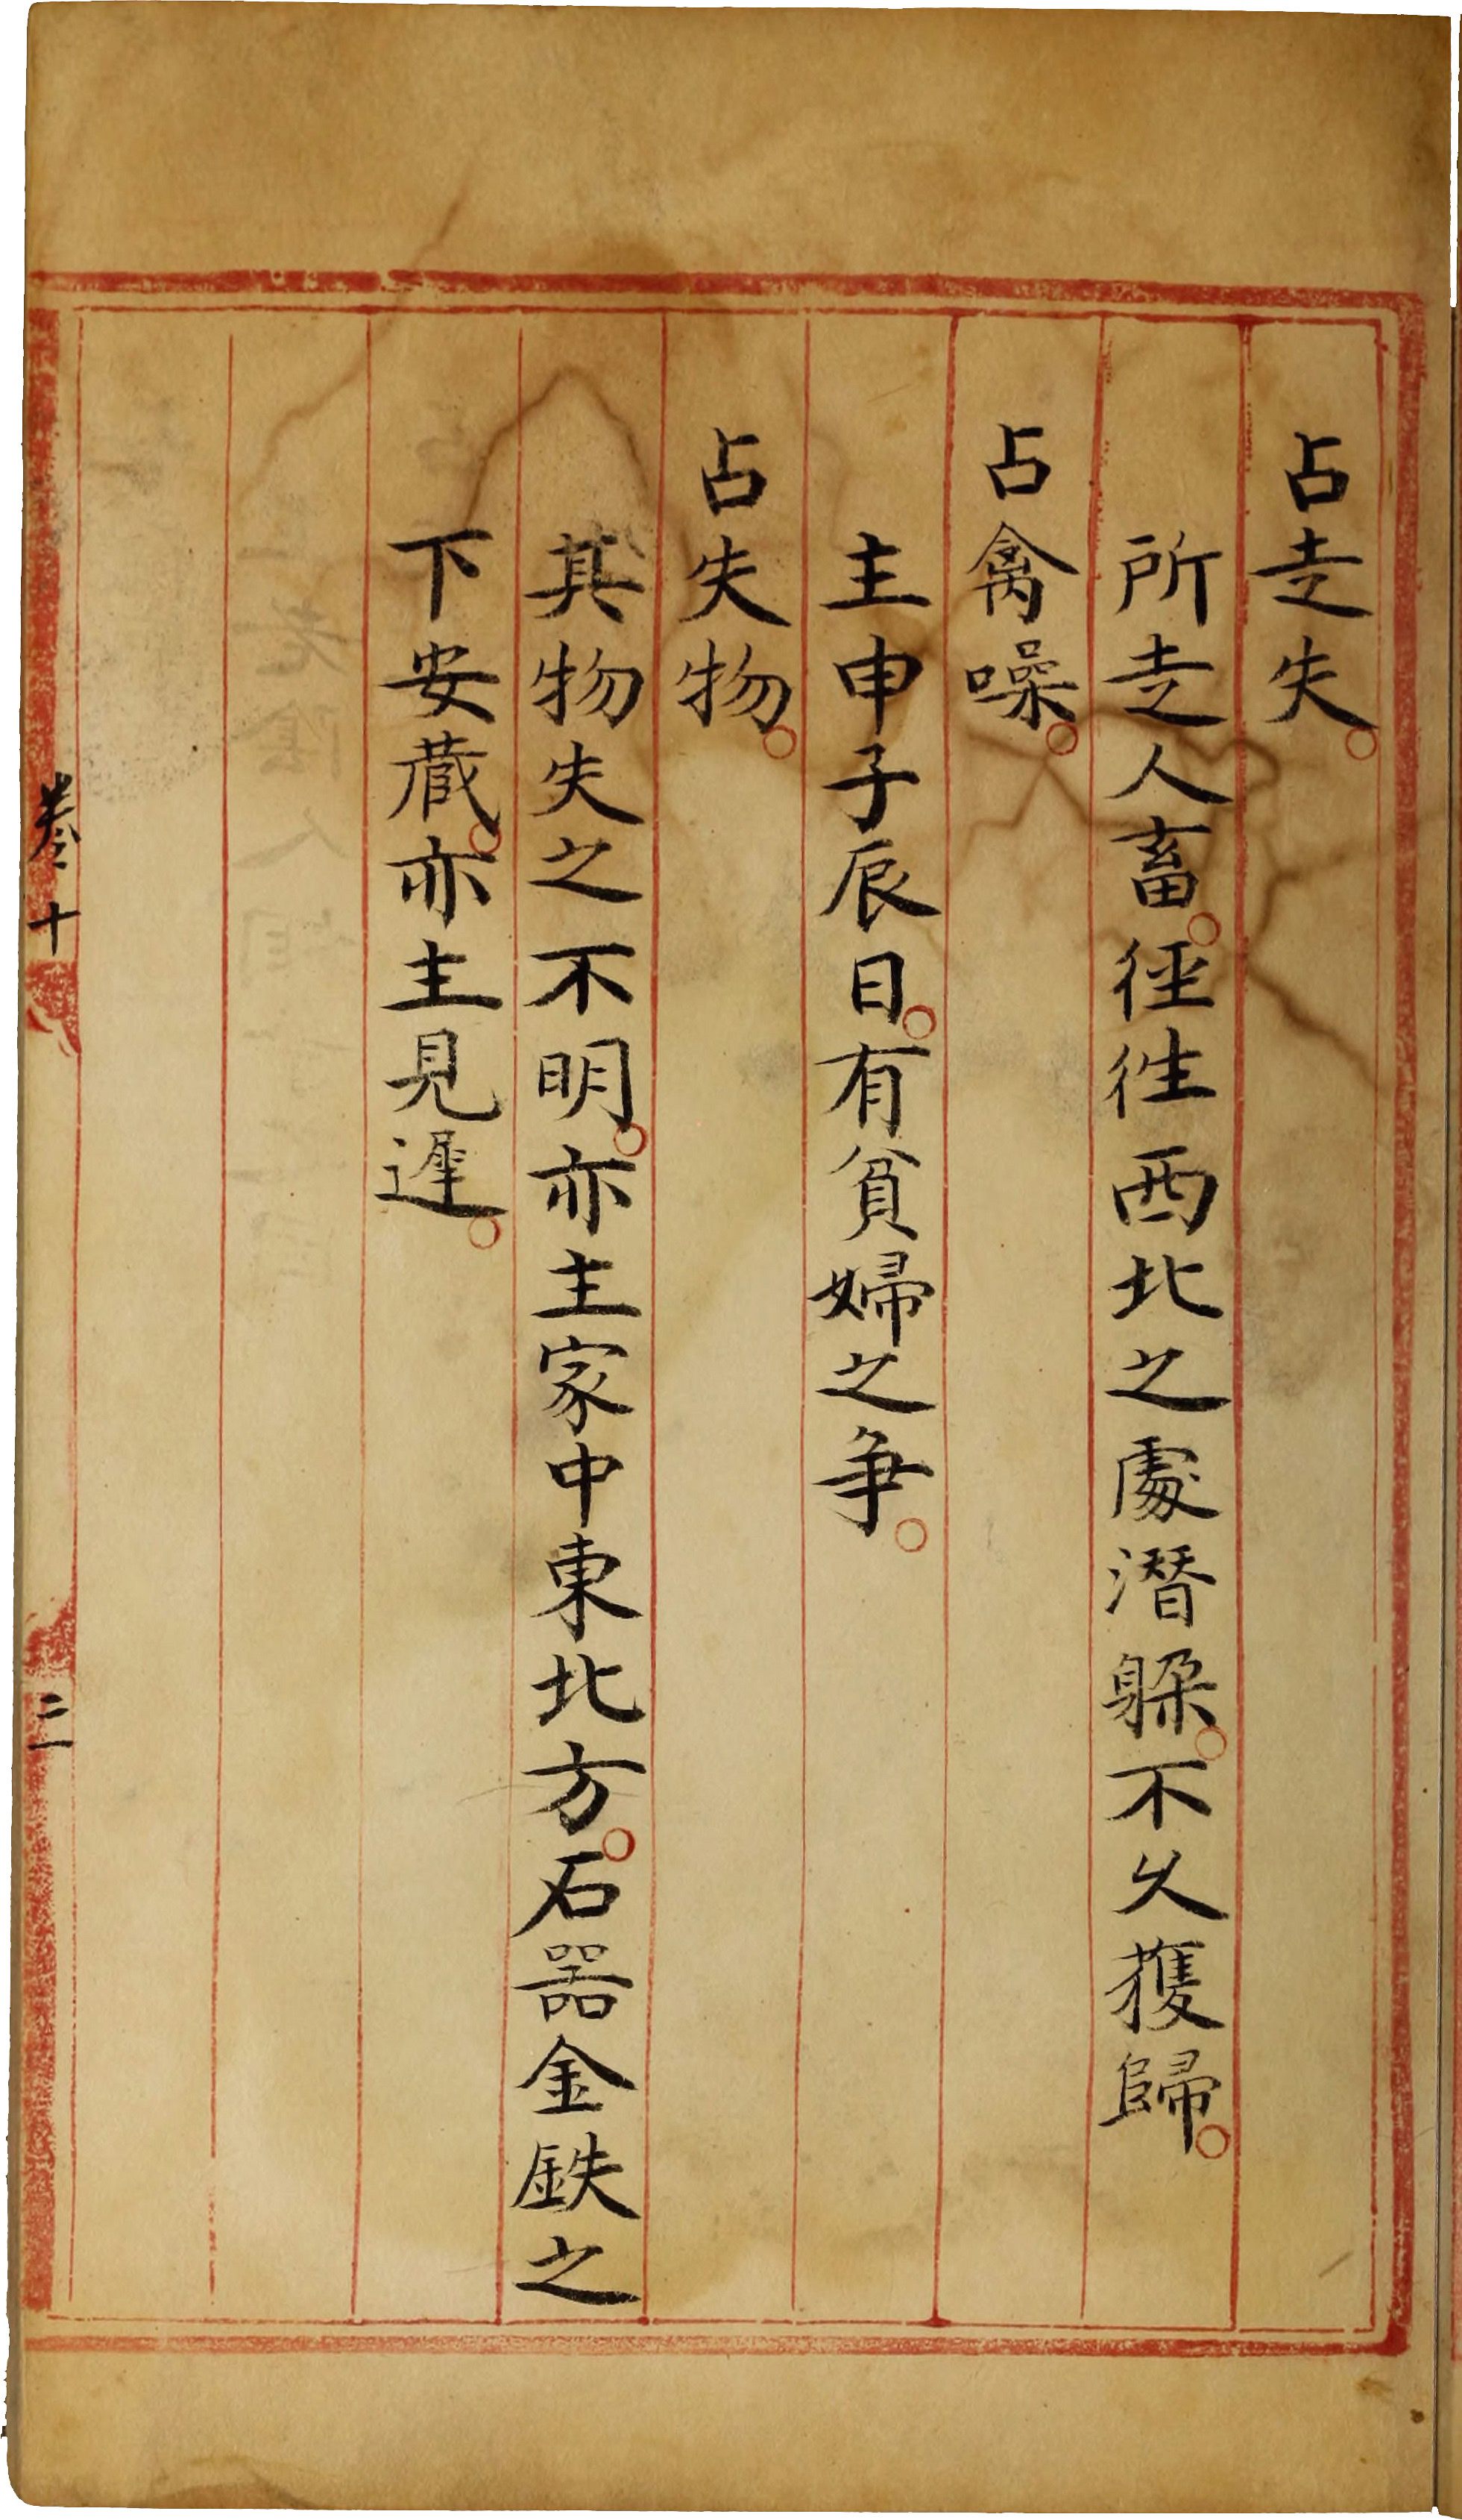 占走失。
所走人畜。徑往西北之處潛躱。不久獲歸。
占禽噪。
主申子辰日。有貧婦之爭。
占失物。
其物失之不明。亦主家中東北方。石器金鉄之
下安藏。亦主見遲。
卷十
二